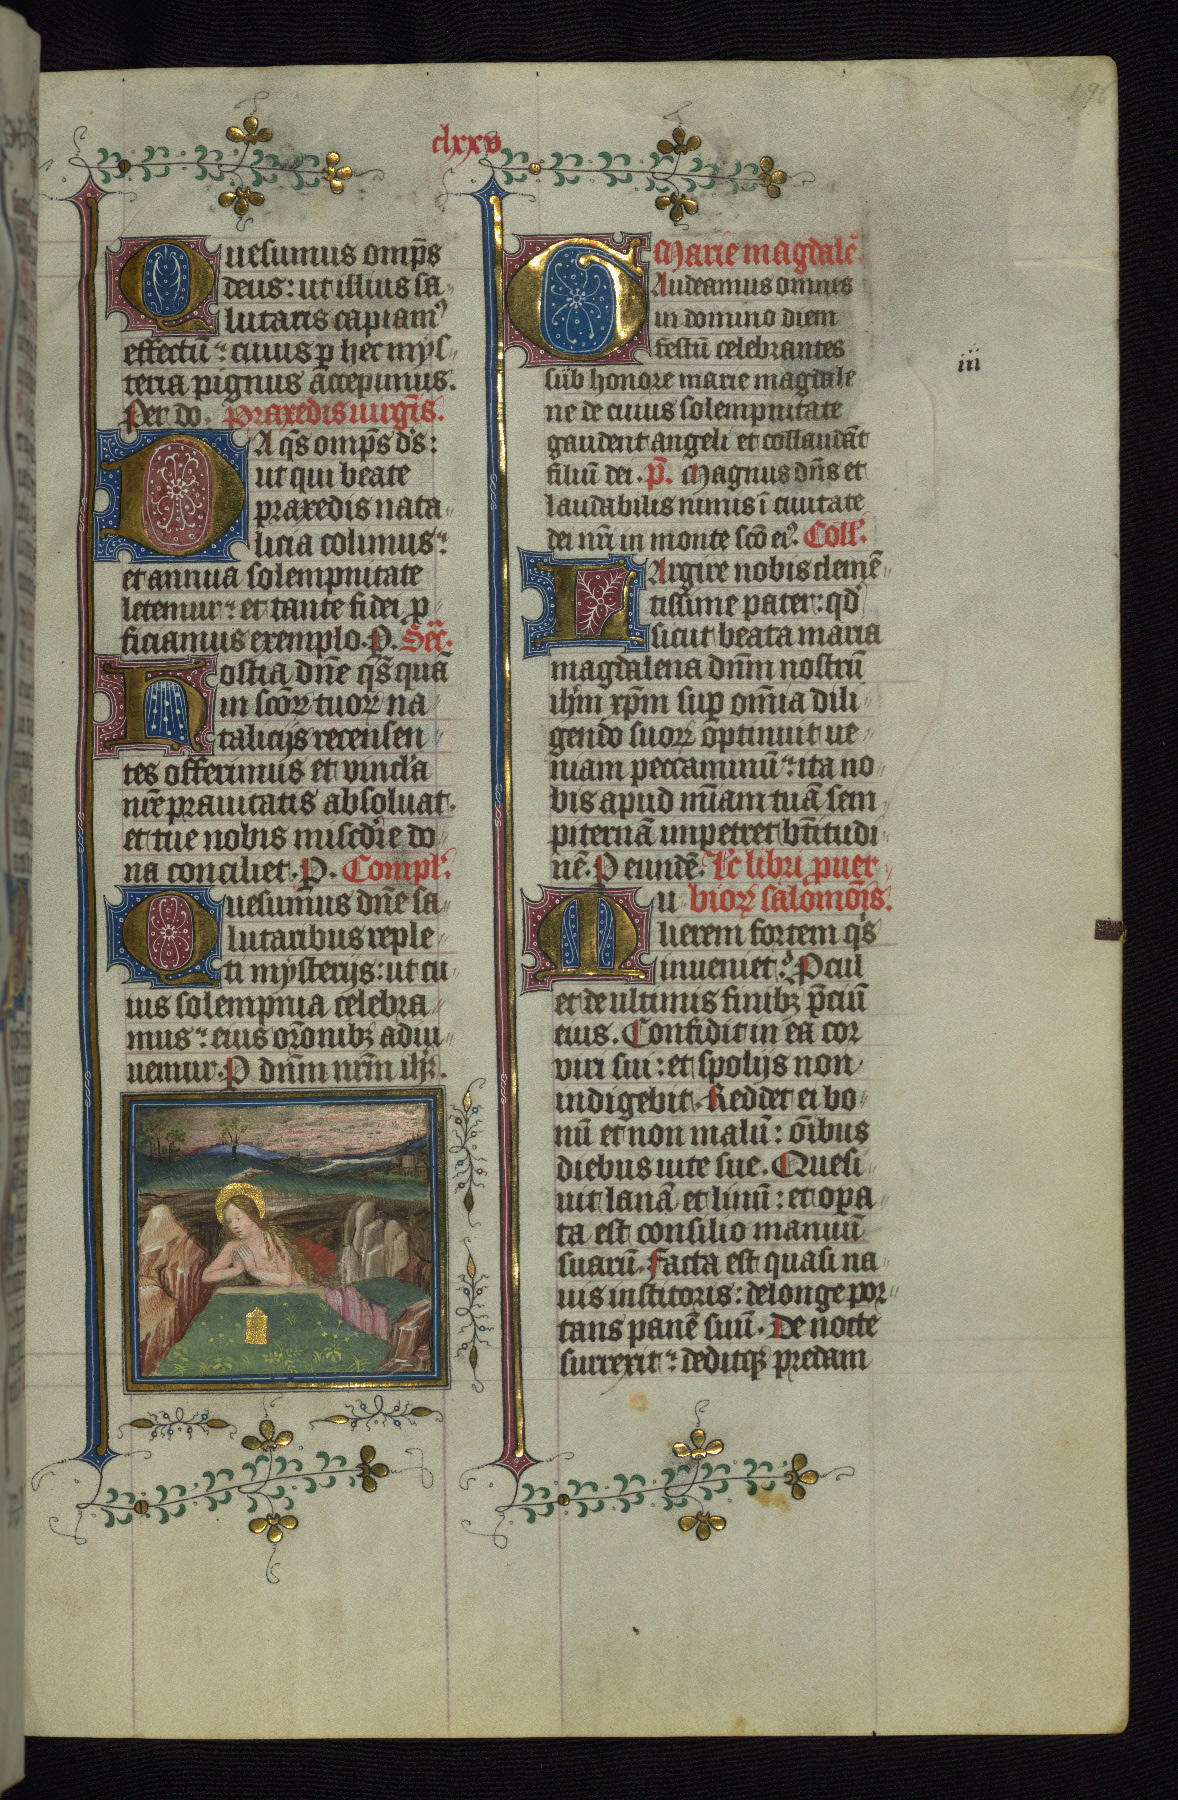 clxxv
196
Quesumus omp̄s
deus: ut illius sa
lutaris capiam᷒
effectū: cuius p hec mys
teria pignus accepimus.
Per do. Praxedis uirgīs.
DA qs omp̄s d̄s:
ut qui beate
praxedis nata
licia colimus:
et annua solempnitate
letemur: et tante fidei p
ficiamus exemplo. P. Sec̄.
Hostia dn̄e qs̄ quā
in scōꝝ tuoꝝ na
talicijs recensen
tes offerimus et vincl'a
nr̄e prauitatis absoluat.
et tue nobis miscd'ie do
na conciliet. P. Compl'.
Quesumus dn̄e sa
lutaribus reple
ti mysterijs: ut cu
ius solempnia celebra
mus: eius or̄onibꝫ adiu
uemur. P dn̄m nr̄m ih̄.
Marie magdale'.
GAudeamus omnes
in domino diem
festū celebrantes
iii
sub honore marie magdale
ne de cuius solempnitate
gaudent angeli et collaudāt
filiū dei. P̄. Magnus dn̄s et
laudabilis nimis ī ciuitate
dei nr̄i in monte scō ei᷒. Coll'.
LArgire nobis clemē
tissime pater: qd'
sicut beata maria
magdalena dn̄m nostrū
ih̄m xp̄m sup om̄ia dili
gendo suoꝝ optinuit ue
niam peccaminū: ita no
bis apud m̄iam tuā sem
piternā impetret b̄titudi
nē. P eundē. Lc̄ libri puer
MU bioꝝ salomōis.
lierem fortem q's
inueniet? Pcul
et de ultimis finibꝫ p̄ciū
eius. Confidit in ea cor
viri sui: et spolijs non
indigebit. Reddet ei bo
nū et non malū: om̄ibus
diebus uite sue. Quesi
uit lanā et linū: et opa
ta est consilio manuū
suarū. Facta est quasi na
uis institoris: de longe por
tans panē suū. De nocte
surrexit: deditqꝫ predam